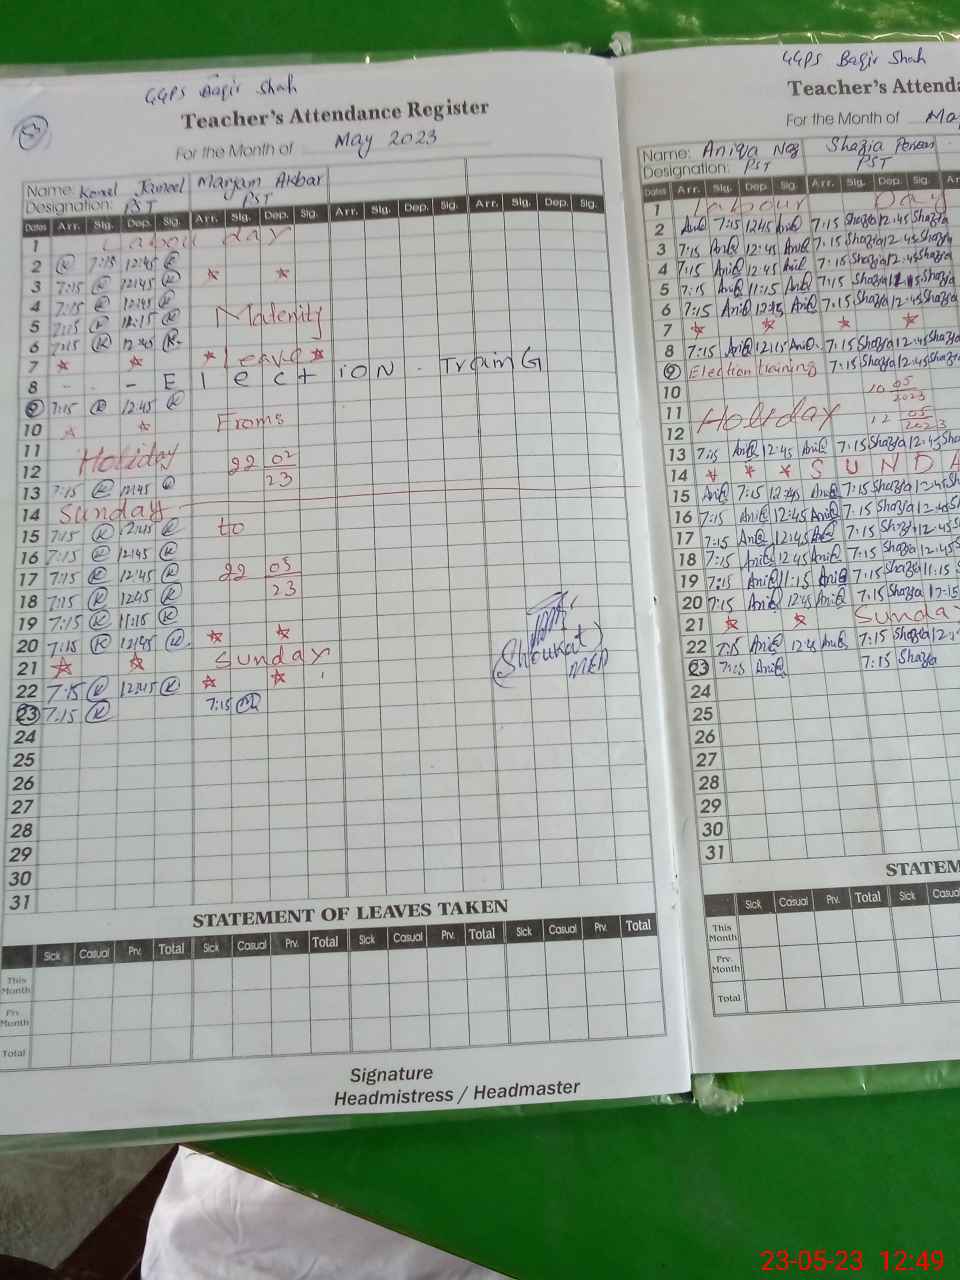 GGPS Baqir Shah
Teacher's Attendance Register
For the Month of May 2023
Name: Komal Jameel Maryam Akbar
Designation: PST PST
Dates Arr. Sig. Dep. Sig. Arr. Sig. Dep. Sig. Arr. Sig. Dep. Sig. Arr. Sig. Dep. Sig.
1 Labour day
2 7:15 12:45
3 7:15 12:45
4 7:15 12:45
5 7:15 Maternity
6 7:15 12:45
7 Leave
8 - - Election Training
9 7:15 12:45
10 From
11 Holiday
12 22 02
23
13 7:15 12:45
14 Sunday
15 7:15 12:45 to
16 7:15 12:45
17 7:15 12:45 22 05
23
18 7:15 12:45
19 7:15 11:15
20 7:15 12:45
21 Sunday
22 7:15 12:45
23 7:15 7:15
24
25
26
27
28
29
30
31
(Shoukat)
STATEMENT OF LEAVES TAKEN
Sick Casual Prv. Total Sick Casual Prv. Total Sick Casual Prv. Total Sick Casual Prv. Total
This Month
Prv. Month
Total
Signature
Headmistress / Headmaster
GGPS Baqir Shah
Teacher's Attenda
For the Month of Ma
Name: Aniqa Naz Shazia Perveen
Designation: PST PST
Dates Arr. Sig. Dep. Sig. Arr. Sig. Dep. Sig. Ar
1 Labour Day
2 AniQ 7:15 12:45 AniQ 7:15 Shazia 12:45 Shazia
3 7:15 AniQ 12:45 AniQ 7:15 Shazia 12:45 Shazia
4 7:15 AniQ 12:45 AniQ 7:15 Shazia 12:45 Shazia
5 7:15 AniQ 11:15 AniQ 7:15 Shazia Shazia
6 7:15 AniQ AniQ 7:15 Shazia 12:45 Shazia
7
8 7:15 AniQ AniQ 7:15 Shazia 12:45 Shazia
9 Election training 7:15 Shazia 12:45 Shazia
10 10 05
2023
11 Holiday
12 12 05
2023
13 7:15 AniQ 12:45 AniQ 7:15 Shazia 12:45 Sha
14 SUNDA
15 AniQ 7:15 12:45 AniQ 7:15 Shazia 12:45 Sh
16 7:15 AniQ 12:45 AniQ 7:15 Shazia 12:45
17 7:15 AniQ 12:45 AniQ 7:15 Shazia 12:45
18 7:15 AniQ 12:45 AniQ 7:15 Shazia 12:45
19 7:15 AniQ 11:15 AniQ 7:15 Shazia 11:15 S
20 7:15 AniQ 12:45 AniQ 7:15 Shazia
21 Sunday
22 7:15 AniQ 12:45 AniQ 7:15 Shazia
23 7:15 AniQ 7:15 Shazia
24
25
26
27
28
29
30
31
STATEM
Sick Casual Prv. Total Sick Casual
This Month
Prv. Month
Total
23-05-23 12:49